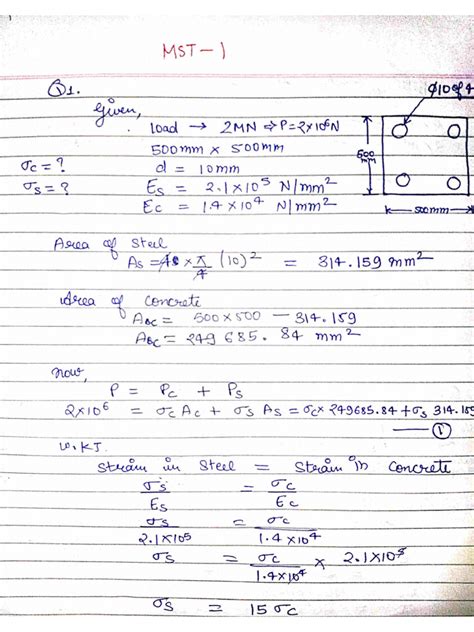 MST-1
Q1.
Given,
ϕ10 of 4
load → 2MN ⇒ P=2×10⁶N
500mm × 500mm
σc = ?
d = 10mm
σs = ?
Es = 2.1×10⁵ N/mm²
Ec = 1.4×10⁴ N/mm²
500 mm
500mm
Area of Steel
As = 4 × π/4 (10)² = 314.159 mm²
Area of Concrete
Aoc = 500×500 – 314.159
Aoc = 249685.84 mm²
now,
P = Pc + Ps
2×10⁶ = σc Ac + σs As = σc× 249685.84 + σs 314.159
— ①
W.K.T.
Strain in Steel = Strain in Concrete
σs/Es = σc/Ec
σs/2.1×10⁵ = σc/1.4×10⁴
σs = σc/1.4×10⁴ × 2.1×10⁵
σs = 15σc